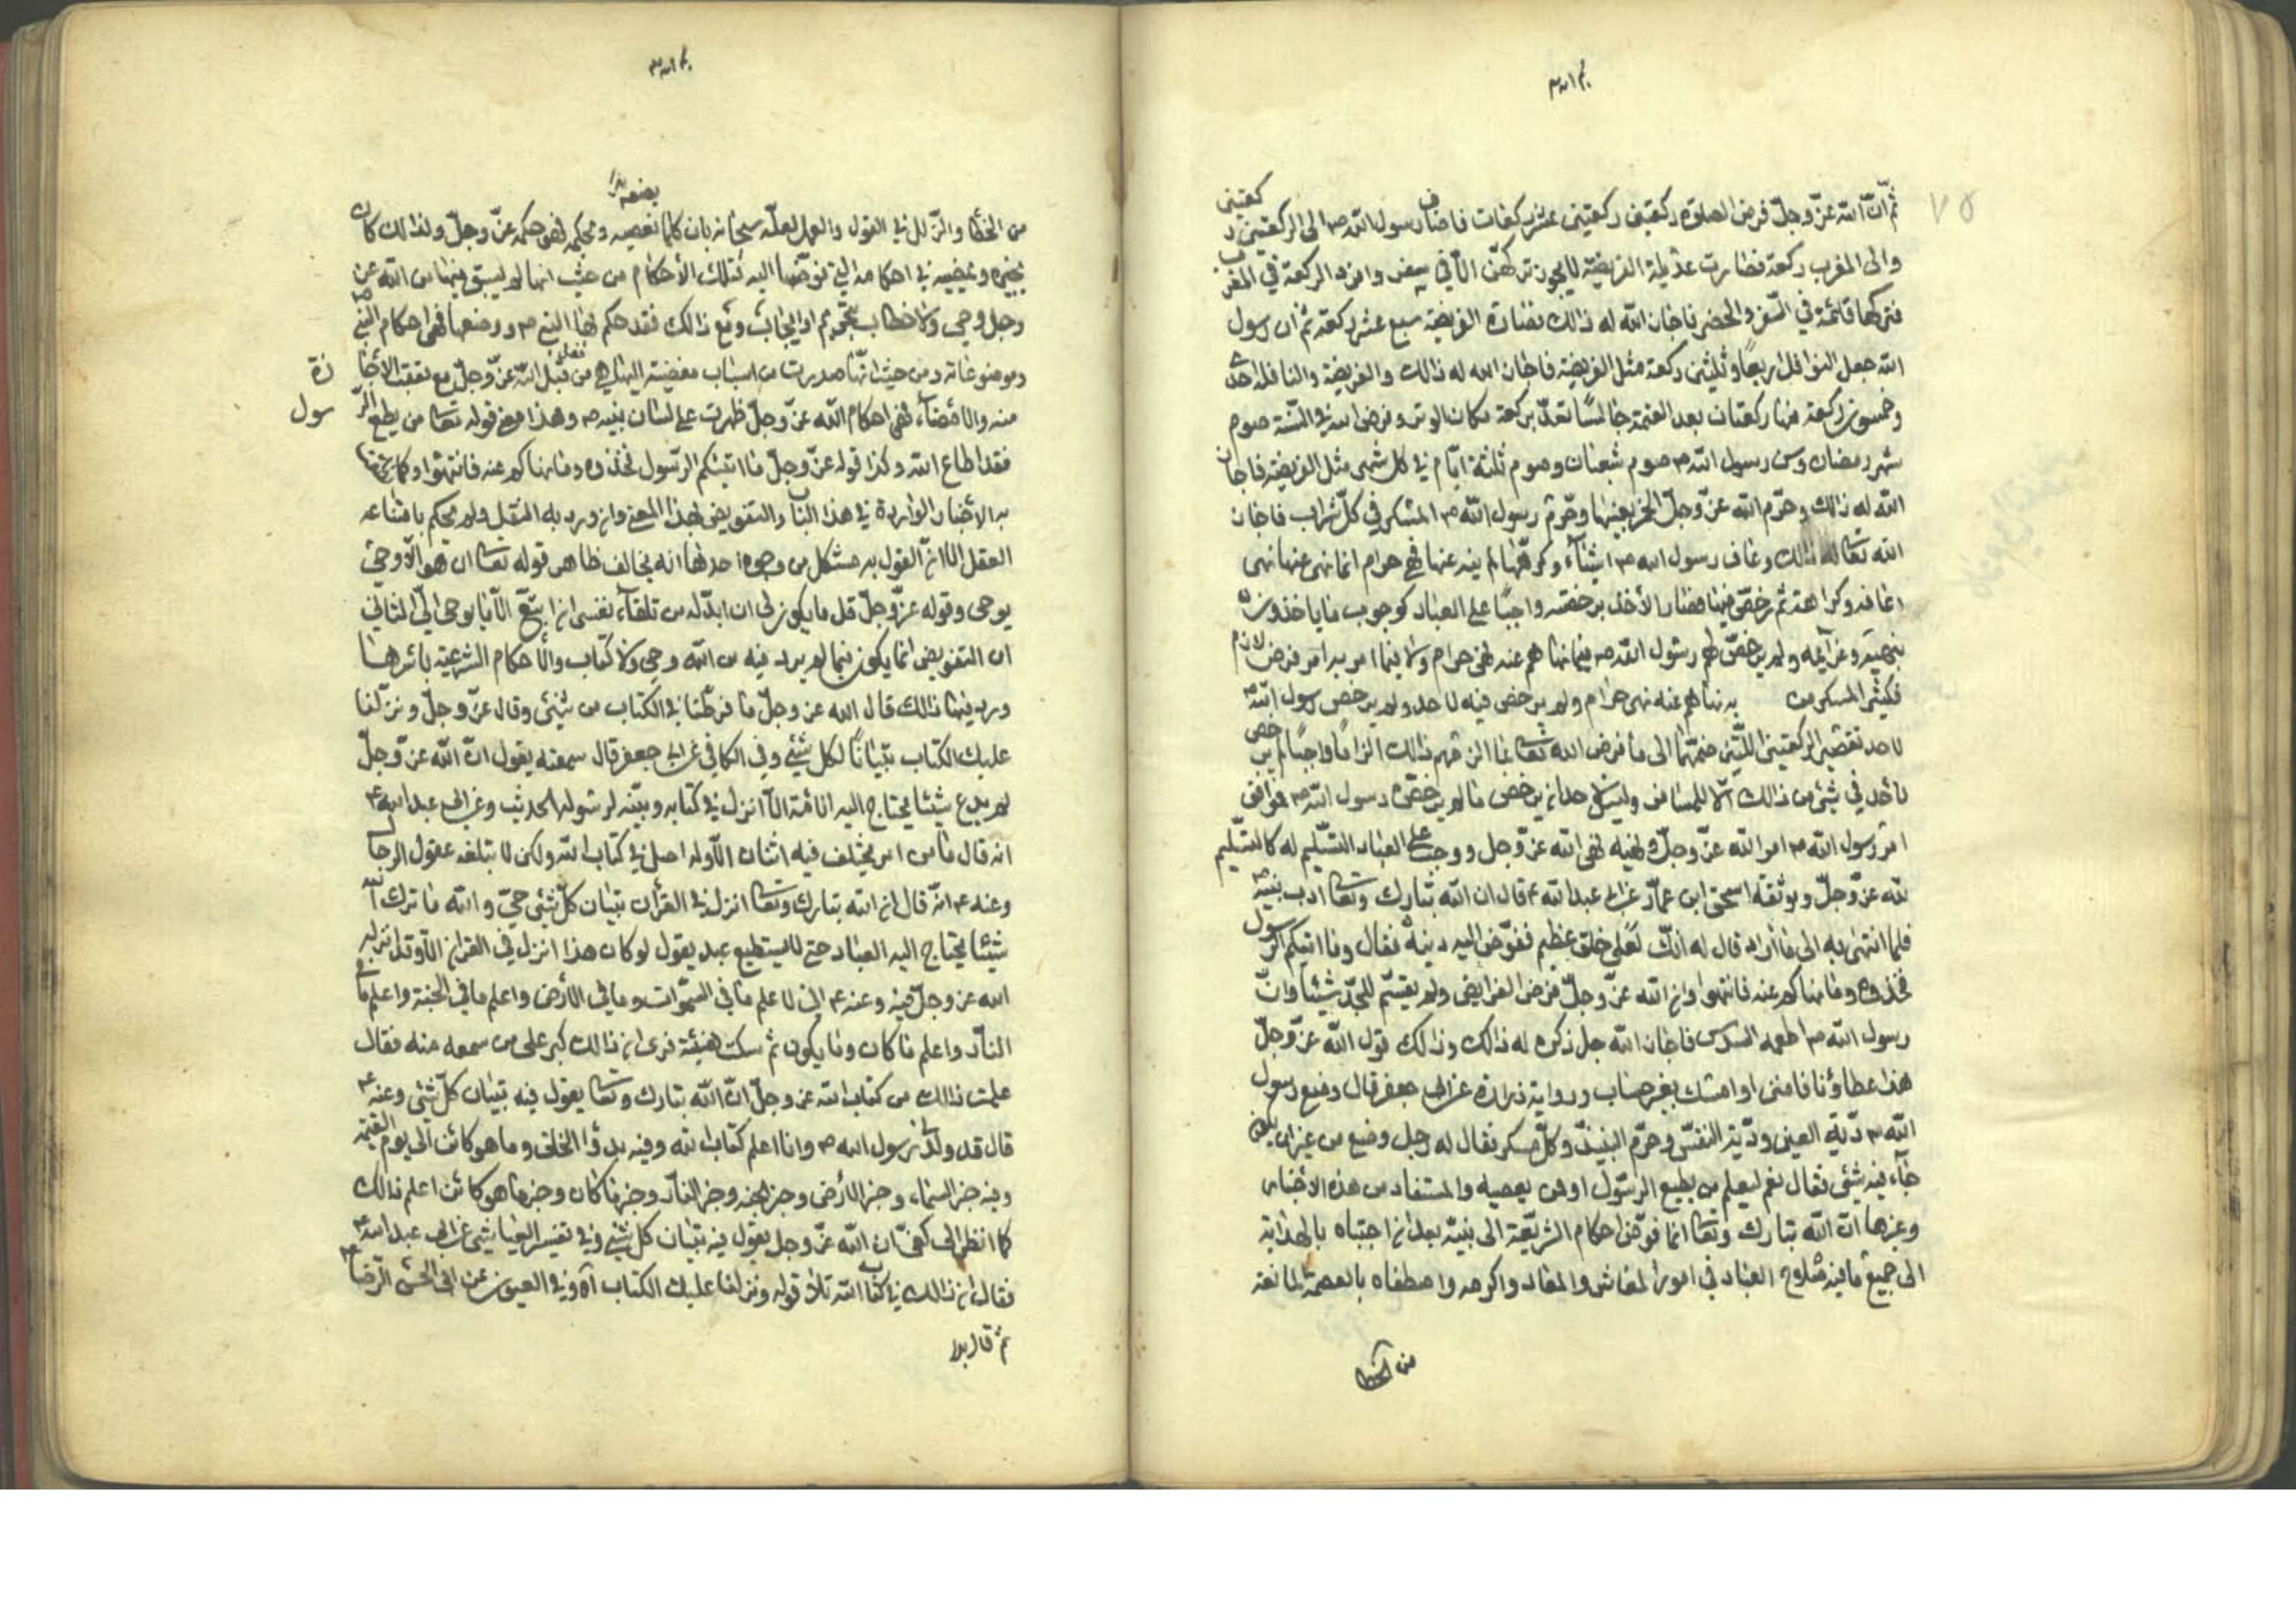 ثمّ انّ الله عزّ وجلّ فرض الصلوة ركعتين ركعتين عشر ركعات فاضاف رسول الله ص الى الركعتين ركعتين
والى المغرب ركعة فصارت عديلة الفريضة لا يجوز تركهنّ الّا في سفر وافرد الركعة في المغرب
فتركها قائمة في السّفر والحضر فاجاز الله له ذالك فصارة الفريضة سبع عشر ركعة ثم ان رسول
الله جعل النوافل اربعًا وثلثين ركعة مثل الفريضة فاجاز الله له ذالك والفريضة والنافلة احدى
وخمسون ركعة منها ركعتان بعد العتمة جالسًا تعدّ بركعة مكان الوتر وفرض الله في السّنة صوم
شهر رمضان وسن رسول الله ص صوم شعبان وصوم ثلثة ايّام في كل شهر مثل الفريضة فاجاز
الله له ذالك وحرّم الله عزّ وجلّ الخمر بعينها وحرّم رسول الله ص المسكر في كلّ شراب فاجاز
الله تعالى له ذالك وعاف رسول الله ص اشياء وكرهها لم ينه عنها نهى حرام انما نهى عنها نهى
اعافه وكراهة ثم رخّص فيها فصار الأخذ برخصته واجبًا على العباد كوجوب ما ياخذون
بنهيه وعزائمه ولم يرخّص لهم رسول الله ص فيما نهاهم عنه نهى حرام ولا فيما امر به امر فرض لازم
فكثير المسكر من به نهاهم عنه نهى حرام ولم يرخص فيه لاحد ولم يرخص رسول الله ص
لاحد تقصير الركعتين اللتين ضمّهما الى ما فرض الله تعالى بل الزمهم ذالك الزامًا واجبًا لم يرخص
لأحد في شئ من ذالك الّا للمسافر وليس لاحد ان يرخص ما لم يرخّصه رسول الله ص فوافق
امر رسول الله ص امر الله عزّ وجلّ ونهيه نهى الله عزّ وجل ووجب على العباد التسّليم له كالتسّليم
لله عزّ وجلّ وموثقة اسحق ابن عمّار عن ابي عبد الله ع قال ان الله تبارك وتعالى ادب نبيّه ص
فلما انتهى به الى ما اراد قال له انّك لعلى خلق عظيم ففوّض اليه دينه فقال وما اتيكم الرسول
فخذوه وما نهاكم عنه فانتهوا وان الله عزّ وجلّ فرض الفرايض ولم يقسّم للجدّ شيئا وانّ
رسول الله ص اطعمه السدس فاجاز الله جل ذكره له ذالك وذالك قول الله عزّ وجلّ
هذا عطاؤنا فامنن او امسك بغير حساب ورواية زرارة عن ابي جعفر قال وضع رسول
الله ص دية العين ودية النفس وحرّم النبيذ وكلّ مسكر فقال له رجل وضع من غير ان يكون
جآء فيه شئ فقال نعم ليعلم من يطيع الرسّول او من يعصيه والمستفاد من هذه الأخبار
وغيرها انّ الله تبارك وتعالى انما فوّض احكام الشريعة الى نبيّه بعد ان اجتباه بالهداية
الى جميع ما فيه صلاح العباد في امور المعاش والمعاد واكرمه واصطفاه بالعصمة المانعة
من الخطا
من الخطأ والزّلل في القول والعمل لعلمه سبحانه بان كلما يصنعه ويحكم فهو حكمه عزّ وجلّ ولذالك كان
يجيزه ويمضيه في احكامه التي فوّضها اليه فتلك الأحكام من حيث انها لم يسبق فيها من الله عز
وجل وحي ولا خطاب بتحريم او ايجاب ومع ذالك فقد حكم بها النبي ص ووضعها فهى احكام النبي
وموضوعاته ومن حيث انّها صدرت من اسباب مفضية اليها هي من قبل الله عزّ وجلّ مع تعقب الأجازة
منه والأمضاء فهى احكام الله عزّ وجلّ ظهرت على لسان نبيه ص وهذا معنى قوله تعالى من يطع الرّسول
فقد اطاع الله وكذا قوله عزّ وجلّ ما اتيكم الرّسول فخذوه وما نهاكم عنه فانتهوا
به الأخبار الواردة في هذا الباب والتفويض بهذا المعنى وان ورد به النقل ولم يحكم بامتناعه
العقل الا انّ القول به مشكل من وجوه احدها انه يخالف ظاهر قوله تعالى ان هو الّا وحي
يوحى وقوله عزّ وجلّ قل ما يكون لى ان ابدّله من تلقآء نفسى ان اتبع الّا ما يوحى الىّ الثاني
ان التفويض انما يكون فيما لم يرد فيه من الله وحي ولا كتاب والأحكام الشرعية باسرها
ورد فيها ذالك قال الله عز وجلّ ما فرطّنا في الكتاب من شئ وقال عزّ وجلّ ونزّلنا
عليك الكتاب تبيانًا لكل شئ وفي الكافي عن ابي جعفر قال سمعته يقول انّ الله عزّ وجلّ
لم يدع شيئا يحتاج اليه الامّة الّا انزل في كتابه وبيّنه لرسوله الحديث وعن ابي عبد الله ع
انه قال ما من امر يختلف فيه اثنان الّا وله اصل في كتاب الله ولكن لا تبلغه عقول الرجال
وعنه ع انّه قال ان الله تبارك وتعالى انزل في القرأن تبيان كلّ شئ حتّى والله ما ترك الله
شيئا يحتاج اليه العباد حتى لا يستطيع عبد يقول لو كان هذا انزل في القران الّا وقد انزله
الله عز وجلّ فيه وعنه ع انى لاعلم ما في السموات وما في الأرض واعلم ما في الجنة واعلم ما في
النار واعلم ما كان وما يكون ثم سكت هنيئة فرى ان ذالك كبر على من سمعه منه فقال
علمت ذالك من كتاب الله عز وجلّ انّ الله تبارك وتعالى يقول فيه تبيان كلّ شئ وعنه ع
قال قد ولدنى رسول الله ص وانا اعلم كتاب الله وفيه بدؤا الخلق وما هو كائن الى يوم القيمة
وفيه خبر السماء وخبر الأرض وخبر الجنة وخبر النار وخبر ما كان وخبر ما هو كائن اعلم ذالك
كما انظر الى كفى انّ الله عزّ وجل يقول فيه تبيان كل شئ وفي تفسير العياشي عن ابي عبد الله ع
فقال ان ذالك في كتاب الله ثلاث قوله ونزلنا عليك الكتاب آه وفي العيون عن ابي الحسن الرّضا ع